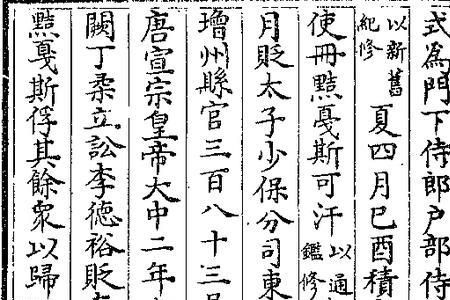 式為門下侍郎户部侍
以新舊
紀修
夏四月己酉積
使冊黠戛斯可汗
以通
鑑修
月貶太子少保分司東
增州縣官三百八十三
唐宣宗皇帝大中二年
闕丁柔立訟李德裕貶
黠戛斯俘其餘衆以歸